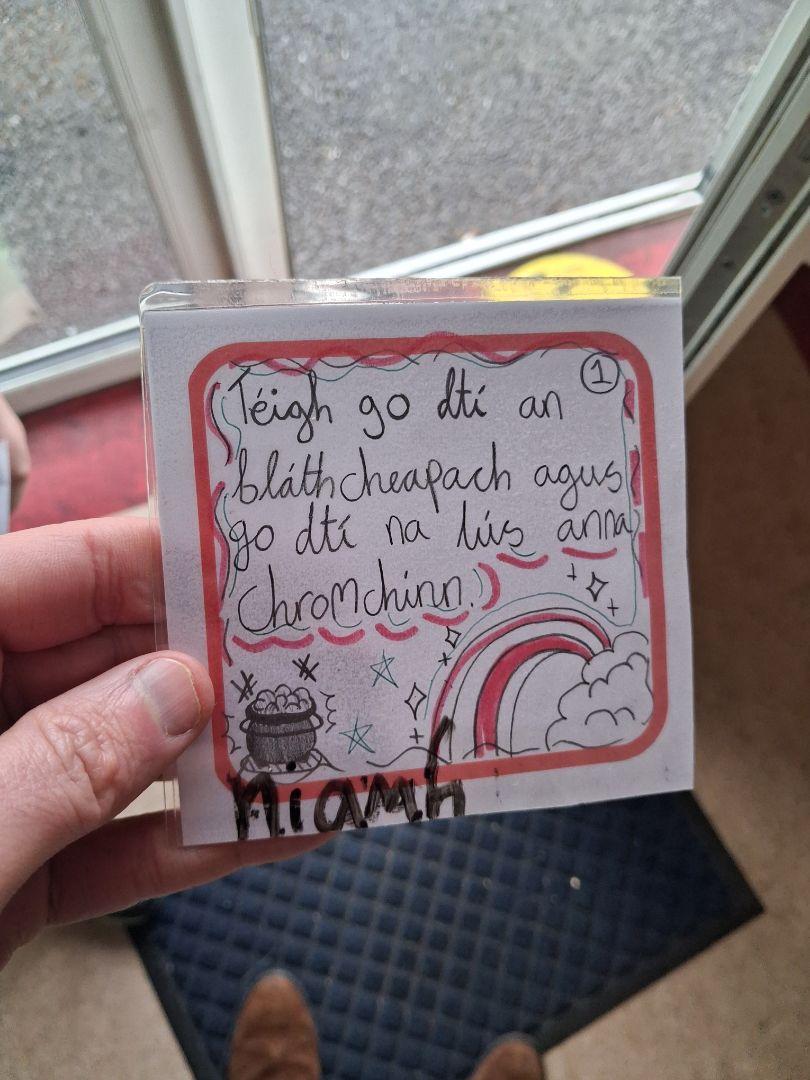 1
Téigh go dtí an
bláthcheapach agus
go dtí na lús anna
chromchinn.
niamh